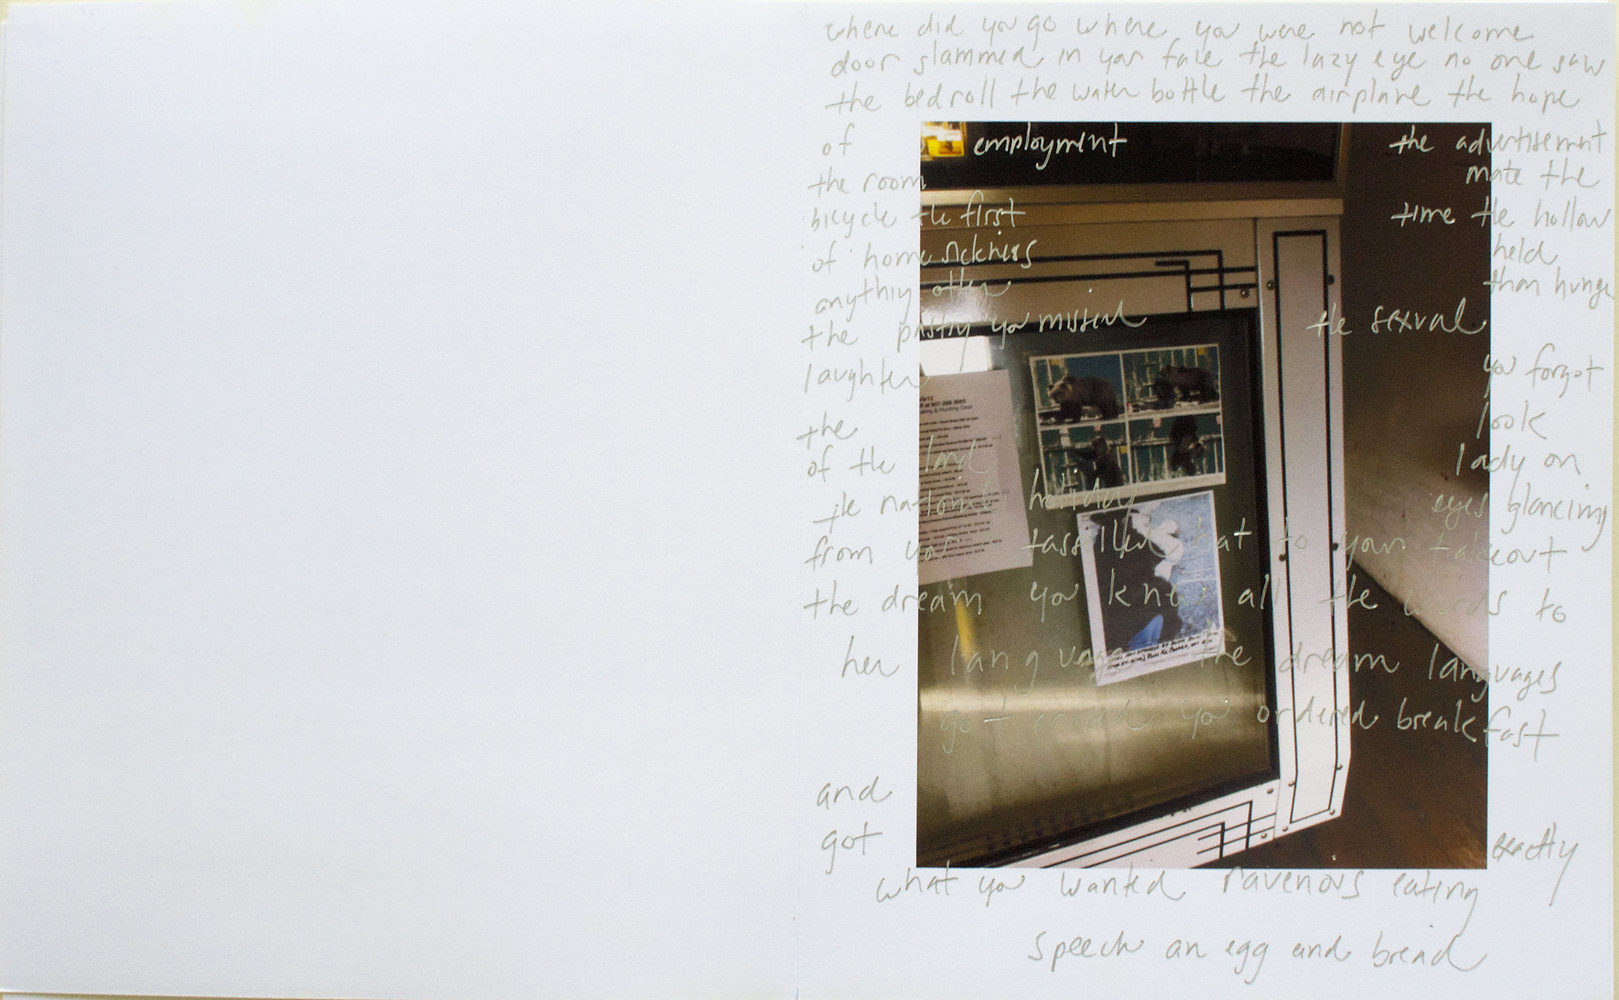 where did you go where you were not welcome
door slammed in your face the lazy eye no one saw
the bedroll the water bottle the airplane the hope
of employment the advertisement
the room mate the
bicycle the first time the hollow
of homesickness held
anything other than hunger
the pastry you missed the sexual
laughter you forgot
the look
of the land lady on
the national holiday eyes glancing
from your tasselled hat to your takeout
the dream you knew all the words to
her language the dream languages
got you ordered breakfast
and
got exactly
what you wanted ravenous eating
speech an egg and bread